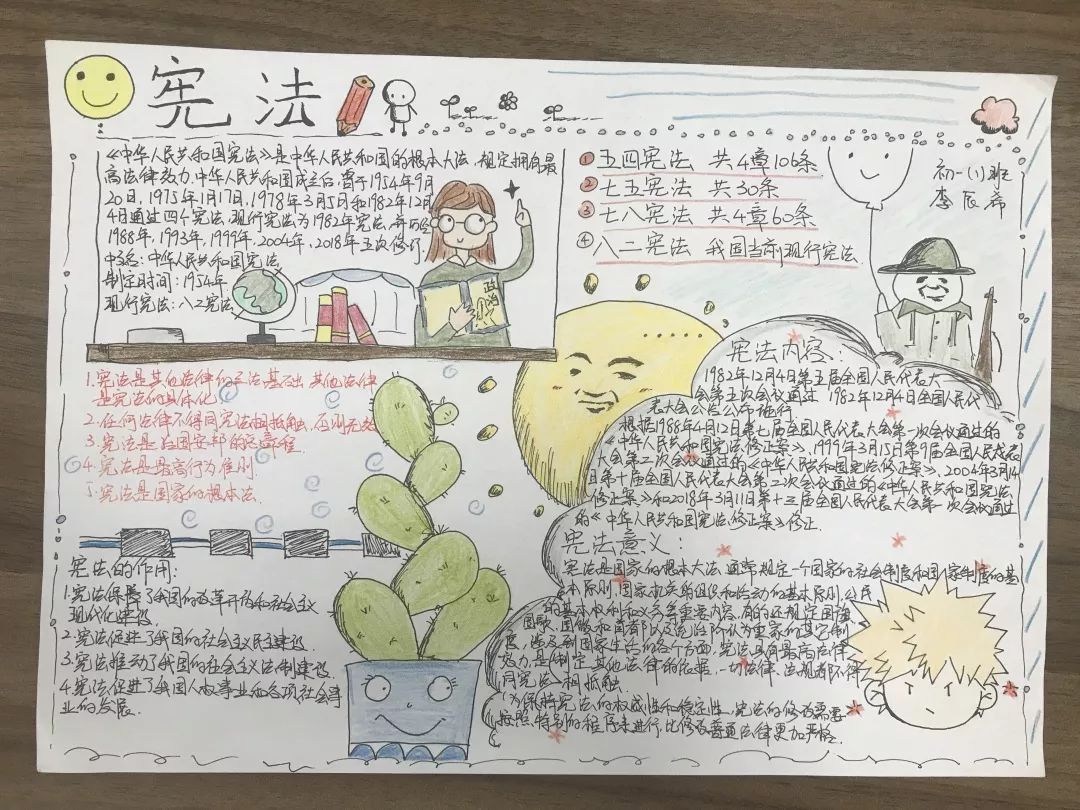 宪法
《中华人民共和国宪法》是中华人民共和国的根本大法,规定拥有最
高法律效力.中华人民共和国成立后,曾于1954年9月
20日,1975年1月17日,1978年3月5日和1982年12月
4日通过四个宪法,现行宪法为1982年宪法,并历经
1988年,1993年,1999年,2004年,2018年五次修订.
中文名:中华人民共和国宪法
制定时间:1954年
现行宪法:八二宪法
政治
①五四宪法 共4章106条
②七五宪法 共30条
③七八宪法 共4章60条
④八二宪法 我国当前现行宪法.
初一(1)班
李辰希
1.宪法是其他法律的立法基础,其他法律
是宪法的具体化.
2.任何法律不得同宪法相抵触,否则无效
3.宪法是治国安邦的总章程
4.宪法是最高行为准则
5.宪法是国家的根本法.
宪法的作用:
1.宪法保障了我国的改革开放和社会主义
现代化建设.
2.宪法促进了我国的社会主义民主建设.
3.宪法推动了我国的社会主义法制建设.
4.宪法促进了我国人权事业和各项社会事
业的发展.
宪法内容:
1982年12月4日第五届全国人民代表大
会第五次会议通过 1982年12月4日全国人民代
表大会公告公布施行
根据1988年4月12日第七届全国人民代表大会第一次会议通过的
《中华人民共和国宪法修正案》,1999年3月15日第9届全国人民代表
大会第二次会议通过的《中华人民共和国宪法修正案》,2004年3月14
日第十届全国人民代表大会第二次会议通过的《中华人民共和国宪法
修正案》和2018年3月11日第十三届全国人民代表大会第一次会议通过
的《中华人民共和国宪法修正案》修正.
宪法意义:
宪法是国家的根本大法,通常规定一个国家的社会制度和国家制度的基
本原则,国家机关的组织和活动的基本原则,公民
的基本权利和义务等重要内容,有的还规定国旗,
国歌,国徽和首都以及统治阶级认为重要的其它制
度,涉及到国家生活的各个方面,宪法具有最高法律
效力,是制定其他法律的依据,一切法律、法规都不得
同宪法相抵触.
为保持宪法的权威性和稳定性,宪法的修改需要
按照特别的程序来进行,比修改普通法律更加严格.